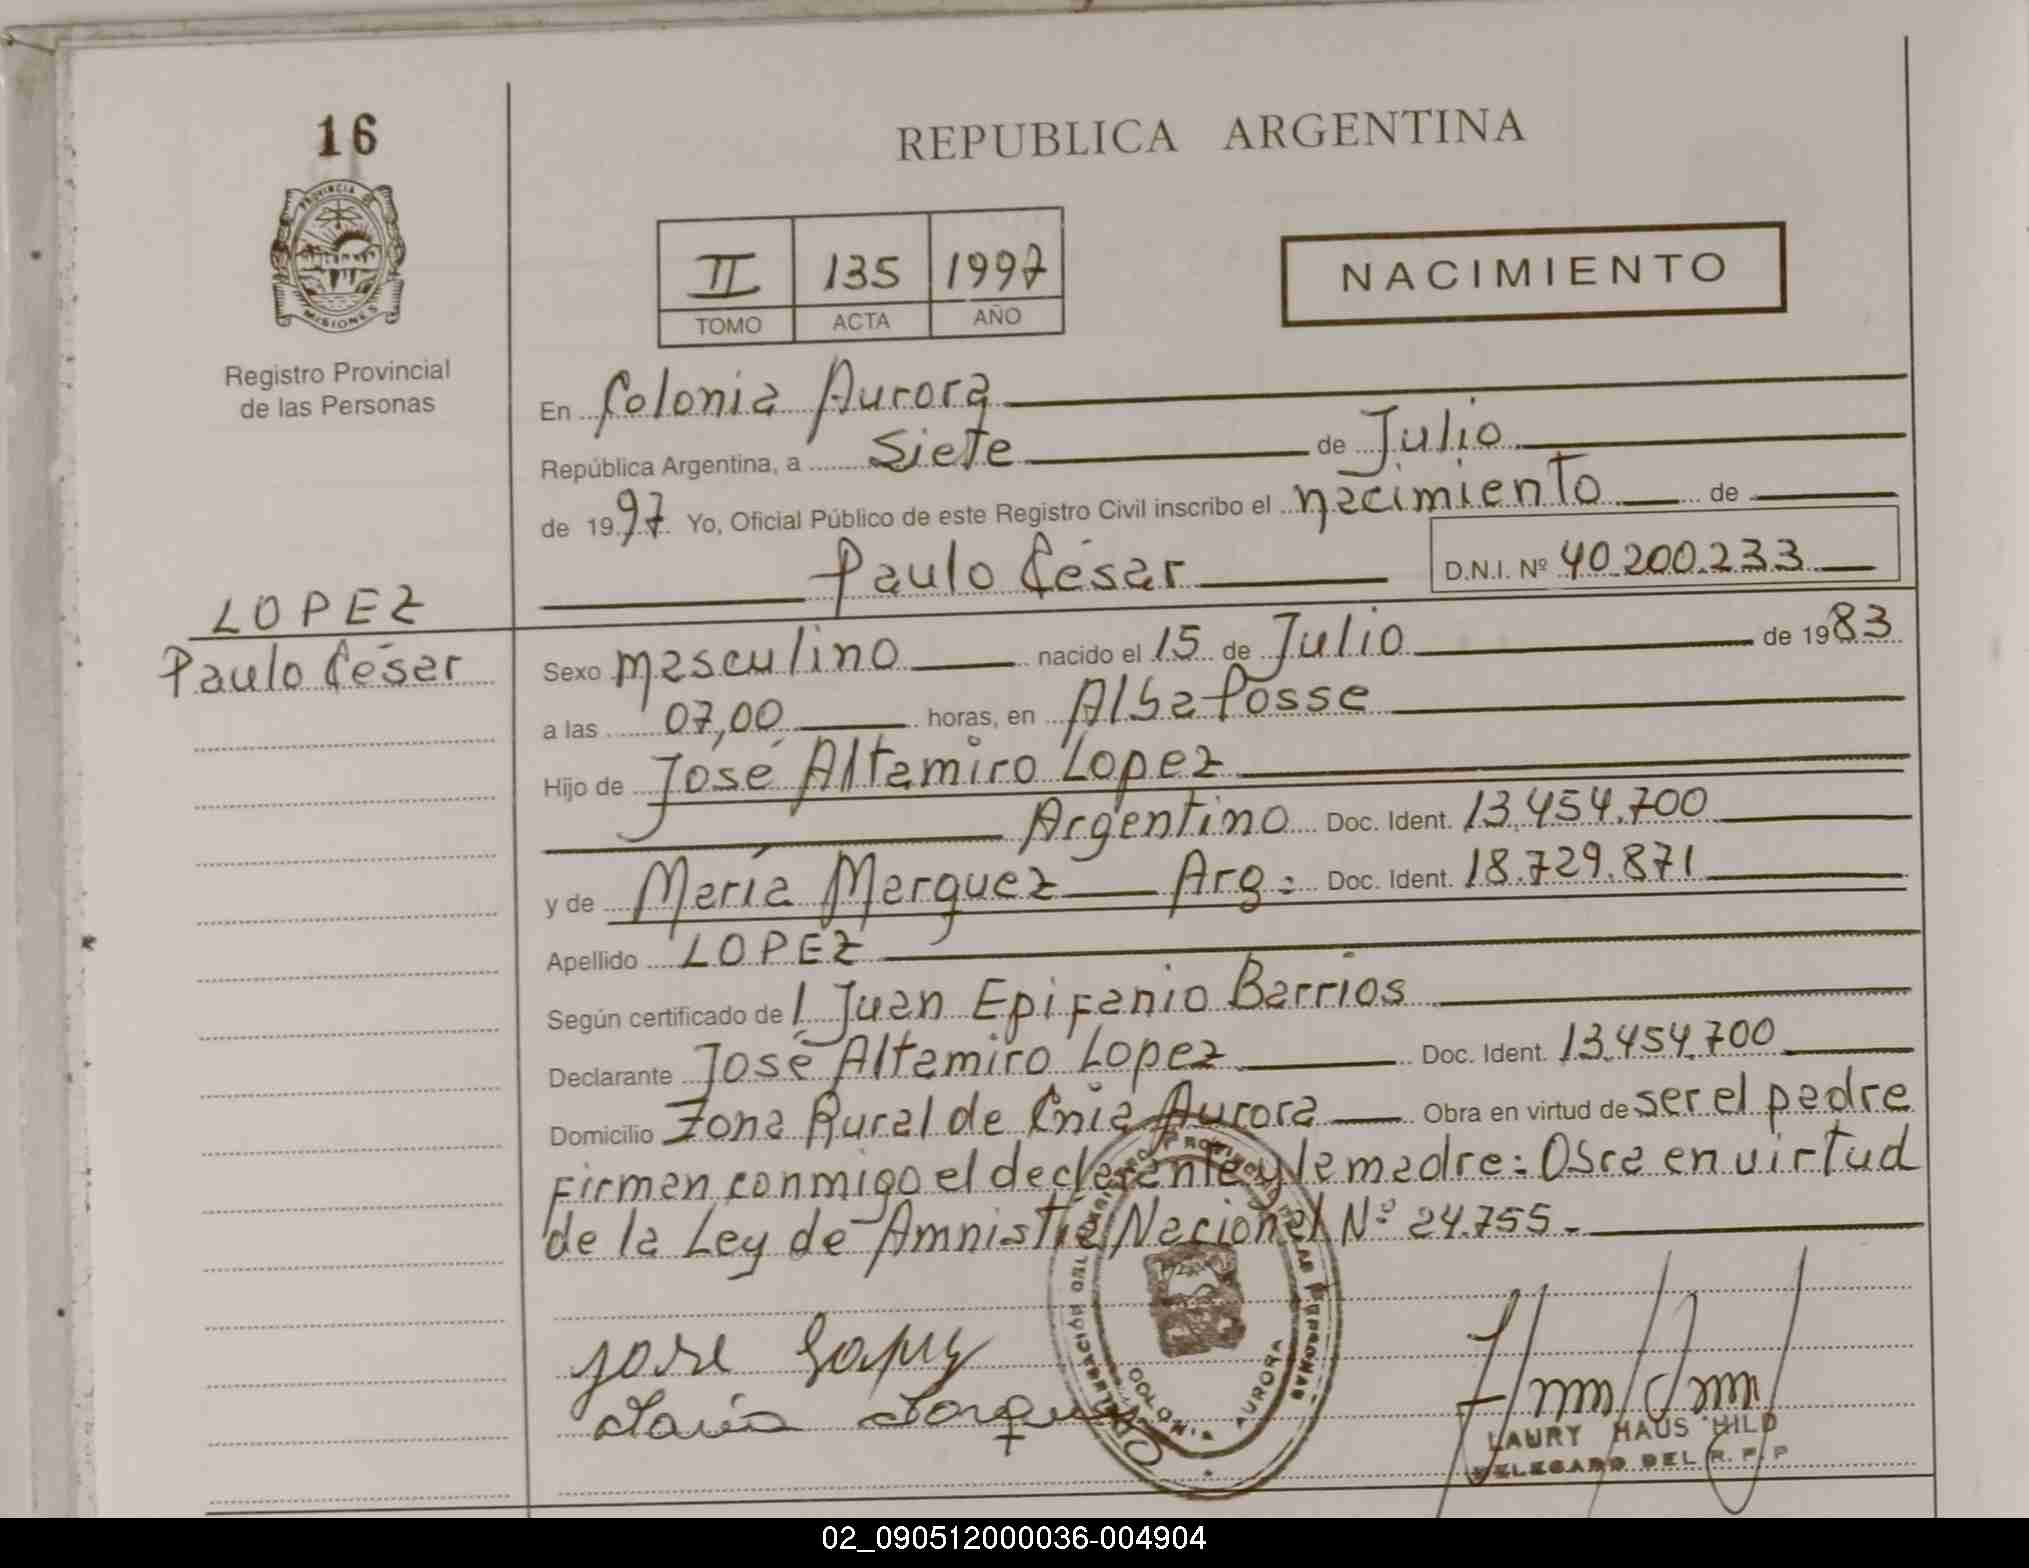 16
PROVINCIA DE
MISIONES
Registro Provincial
de las Personas
REPUBLICA ARGENTINA
II 135 1997
TOMO ACTA AÑO
NACIMIENTO
En Colonia Aurora
República Argentina, a siete de Julio
de 1997 Yo, Oficial Público de este Registro Civil inscribo el nacimiento de
Paulo César D.N.I. Nº 40.200.233
LOPEZ
Paulo César
Sexo masculino nacido el 15 de Julio de 1983
a las 07,00 horas, en Alba Posse
Hijo de José Altamiro Lopez
Argentino Doc. Ident. 13.454.700
y de María Marquez Arg: Doc. Ident. 18.729.871
Apellido LOPEZ
Según certificado de Juan Epifanio Barrios
Declarante José Altamiro Lopez Doc. Ident. 13.454.700
Domicilio Zona Rural de Cnia Aurora Obra en virtud de ser el padre
Firman conmigo el declarante y la madre: Obra en virtud
de la Ley de Amnistia Nacional Nº 24.755.-
DELEGACIÓN DEL REGISTRO PROVINCIAL DE LAS PERSONAS
COLONIA AURORA
Jose Lopez
Maria Marquez
LAURY HAUSHILD
DELEGADO DEL R.P.P
02_090512000036-004904